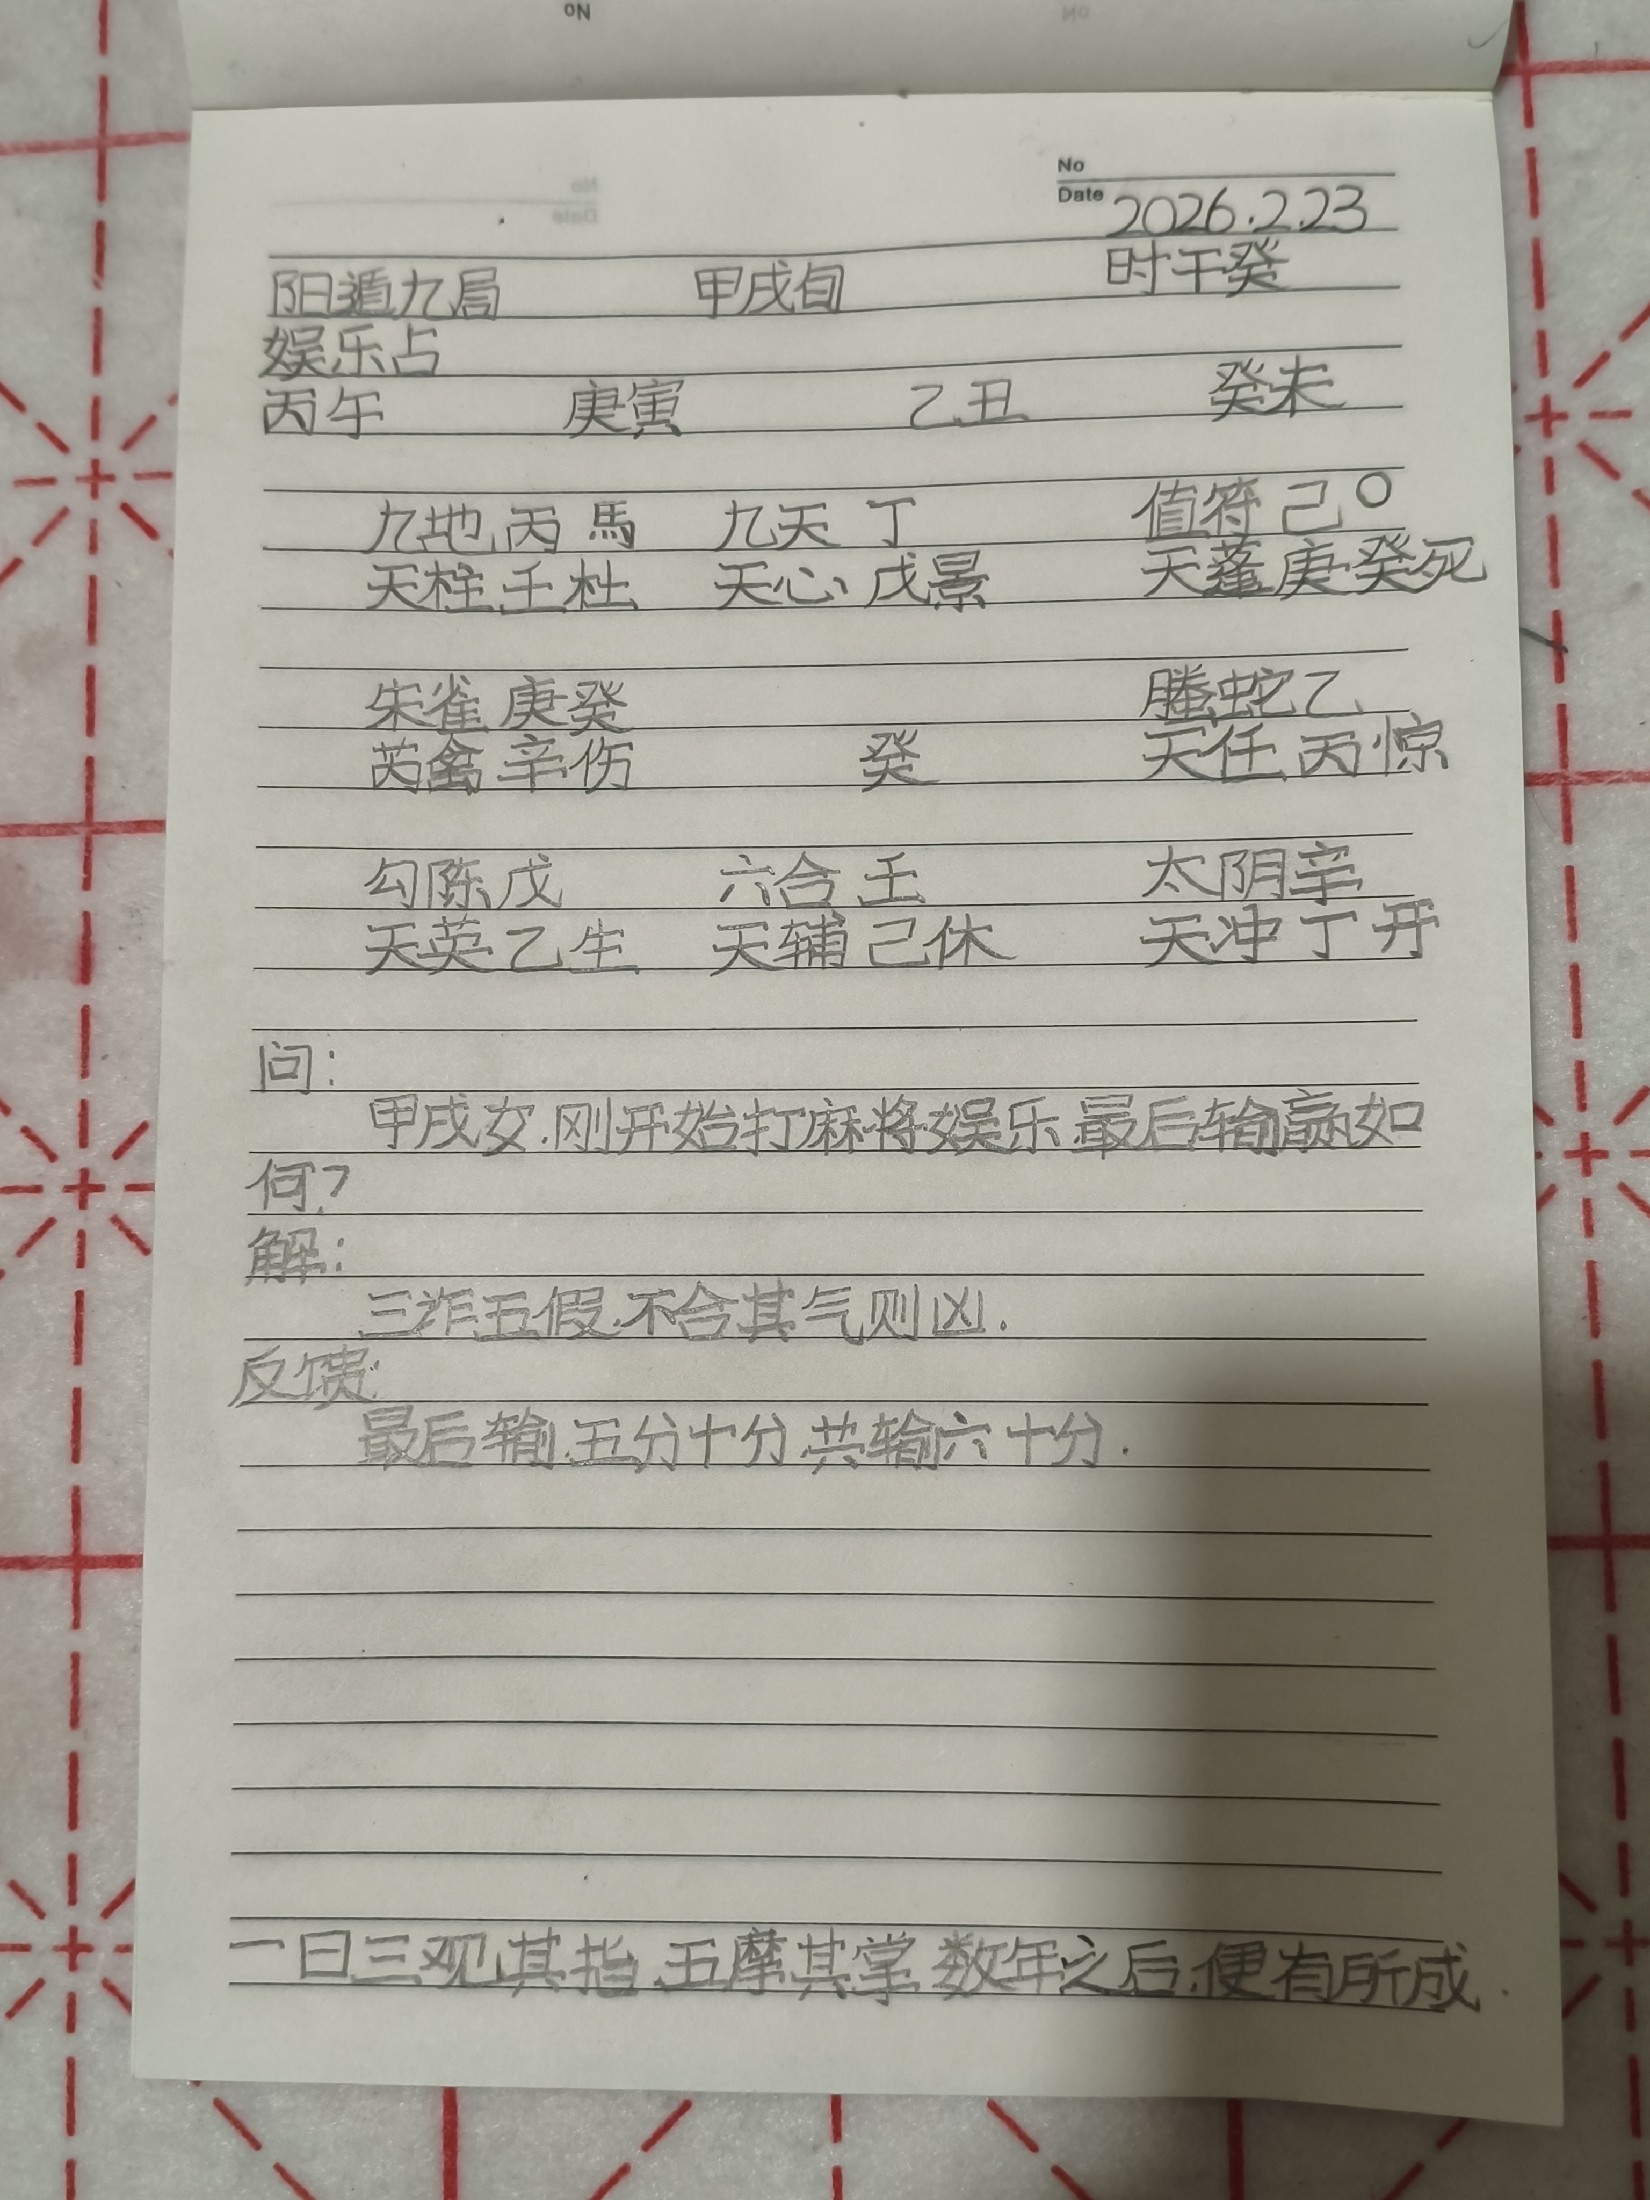 No
No
No
Date 2026.2.23
阳遁九局 甲戌旬 时干癸
娱乐占
丙午 庚寅 乙丑 癸未
九地丙馬 九天丁 值符己○
天柱壬杜 天心戊景 天蓬庚癸死
朱雀庚癸 螣蛇乙
芮禽辛伤 癸 天任丙惊
勾陈戊 六合壬 太阴辛
天英乙生 天辅己休 天冲丁开
问:
甲戌女.刚开始打麻将娱乐.最后输赢如
何?
解:
三诈五假.不合其气则凶.
反馈:
最后输.五分十分.共输六十分.
一日三观其指.五摩其掌.数年之后.便有所成.